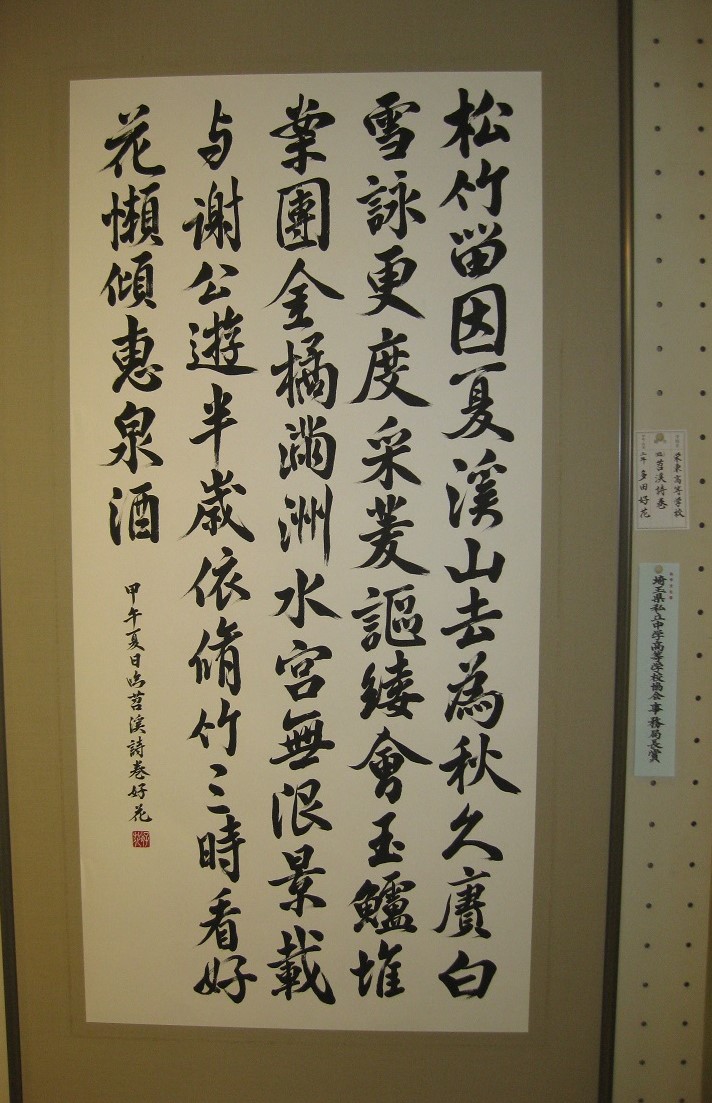 松竹留因夏溪山去為秋久賡白
雪詠更度采菱謳縷會玉鱸堆
案團金橘滿洲水宮無限景載
与謝公遊半歳依脩竹三時看好
花懶傾惠泉酒
甲午夏日臨苕溪詩巻好花
栄東高等学校
苕溪詩巻
二年 多田好花
埼玉県私立中学高等学校協会事務局長賞